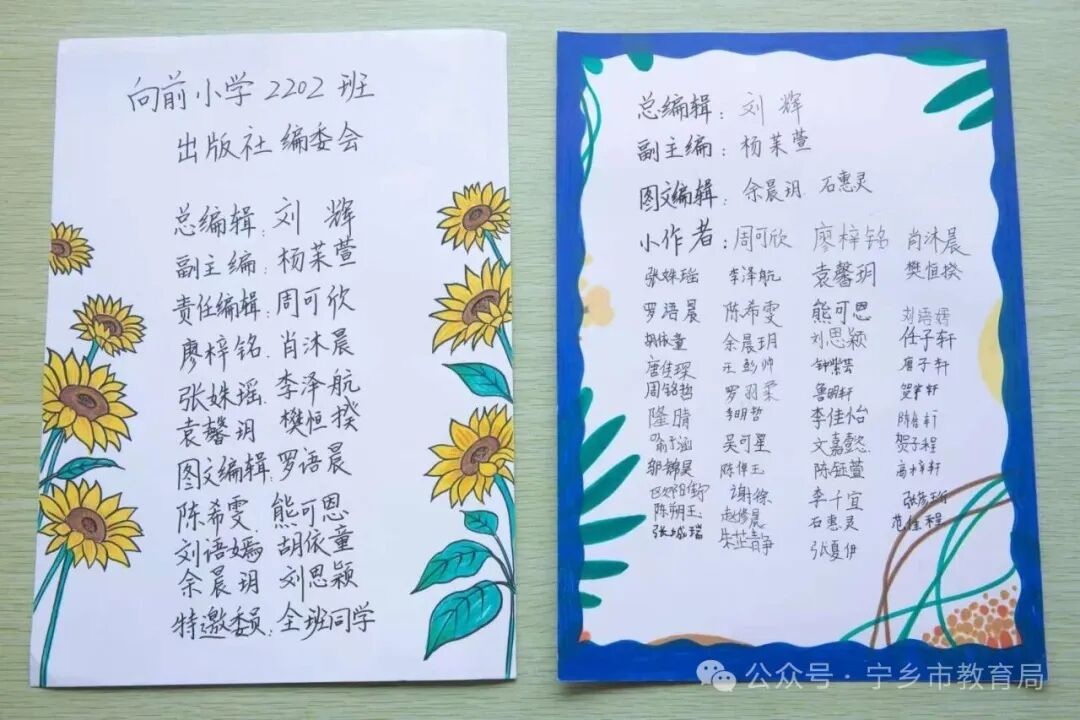 向前小学2202班
出版社编委会
总编辑:刘 辉
副主编:杨茉萱
责任编辑:周可欣
廖梓铭 肖沐晨
张姝瑶 李泽航
袁馨玥 樊恒揆
图文编辑:罗语晨
陈希雯 熊可恩
刘语嫣 胡依童
余晨玥 刘思颖
特邀委员:全班同学
总编辑:刘 辉
副主编:杨茉萱
图文编辑:余晨玥 石惠灵
小作者:周可欣 廖梓铭 肖沐晨
张姝瑶 李泽航 袁馨玥 樊恒揆
罗语晨 陈希雯 熊可恩 刘语嫣
胡依童 余晨玥 刘思颖 任子轩
唐佳琛 王彭帅 唐子轩
周铭哲 罗羽柔 鲁明轩
隆晴 李明哲 李佳怡
喻于涵 吴可星 文嘉懿 贺子程
邬锦昊 陈钰萱
谢徐 李千宜
陈朔玉 赵修晨 石惠灵 范佳程
张城瑞 朱芷静 张夏伊
公众号·宁乡市教育局